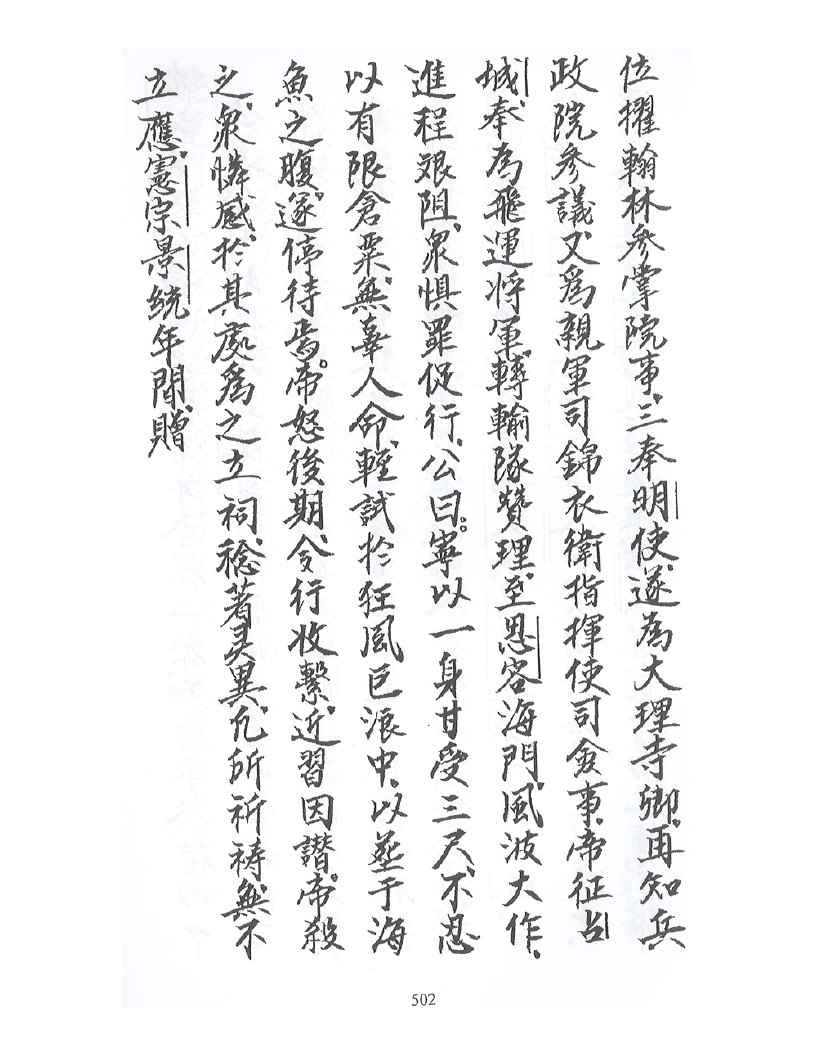 位擢翰林參掌院事、三奉明使、遂為大理寺卿、再知兵
政院參議、又為親軍司錦衣衛指揮使司僉事、帝征占
城、奉為飛運将軍、轉輸隊贊理、至思客海門、風波大作、
進程艱阻、衆惧罪促行、公曰。寧以一身甘受三尺、不忍
以有限倉粟無辜人命、輕試於狂風巨浪中、以塟于海
魚之腹、遂停待焉。帝怒後期、令行收繫、近習因譖。帝殺
之、衆憐感、於其處為之立祠、稔著灵異、凡所祈祷、無不
立應、憲宗景統年間、贈
502